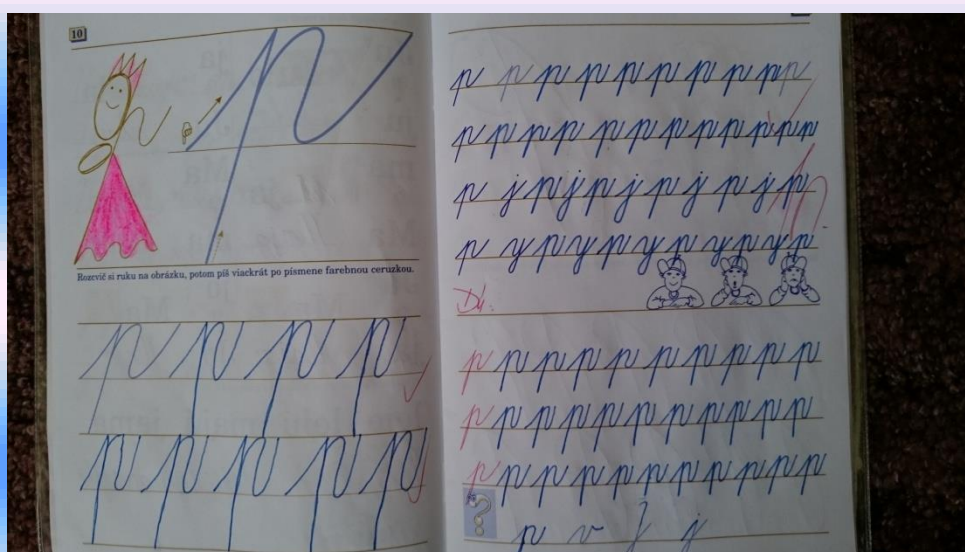 10
p
Rozcvič si ruku na obrázku, potom píš viackrát po písmene farebnou ceruzkou.
p p p p
p p p p p
p p p p p p p p p p
p p p p p p p p p p p p
p j p j p j p j p j p
p y p y p y p y p y p
Dú.
p p p p p p p p p p
p p p p p p p p p p p
p p p p p p p p p p p
?
p v j